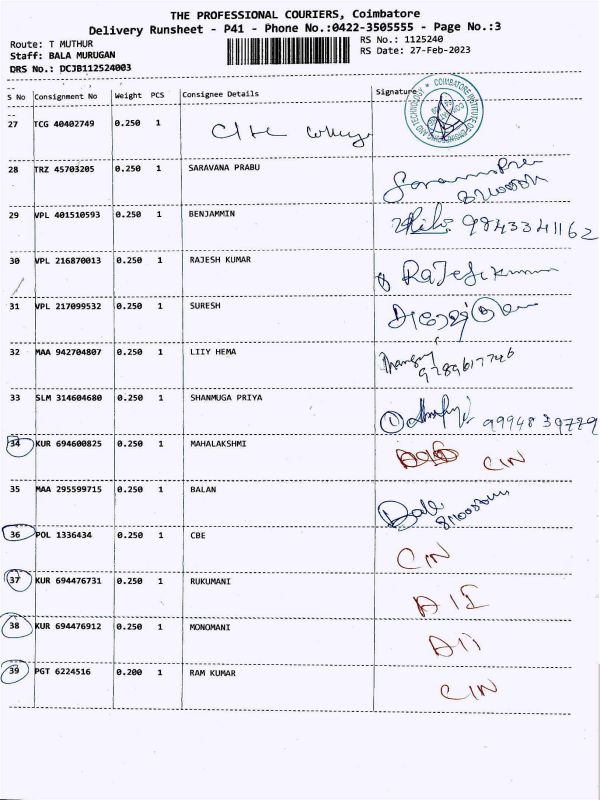 THE PROFESSIONAL COURIERS, Coimbatore
Delivery Runsheet - P41 - Phone No.:0422-3505555 - Page No.:3
Route: T MUTHUR
RS No.: 1125240
Staff: BALA MURUGAN
RS Date: 27-Feb-2023
DRS No.: DCJB112524003
S No Consignment No Weight PCS Consignee Details Signature
27 TCG 40402749 0.250 1 College
28 TRZ 45703205 0.250 1 SARAVANA PRABU
29 VPL 401510593 0.250 1 BENJAMMIN 9843341162
30 VPL 216870013 0.250 1 RAJESH KUMAR
31 VPL 217099532 0.250 1 SURESH
32 MAA 942704807 0.250 1 LIIY HEMA 9789617746
33 SLM 314604680 0.250 1 SHANMUGA PRIYA 9994839779
34 KUR 694600825 0.250 1 MAHALAKSHMI CIN
35 MAA 295599715 0.250 1 BALAN
36 POL 1336434 0.250 1 CBE CIN
37 KUR 694476731 0.250 1 RUKUMANI
38 KUR 694476912 0.250 1 MONOMANI
39 PGT 6224516 0.200 1 RAM KUMAR CIN